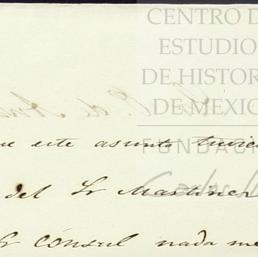 CENTRO D
ESTUDIO
DE HISTOR
DE MEXIC
FUNDACI
ue este asunto tuvie
del Sr Martinez
Sr cónsul nada me